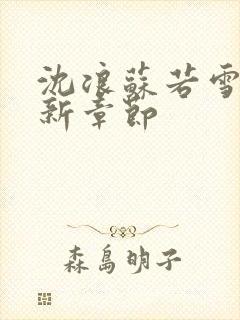 沈浪蘇若雪
新章節
森島明子